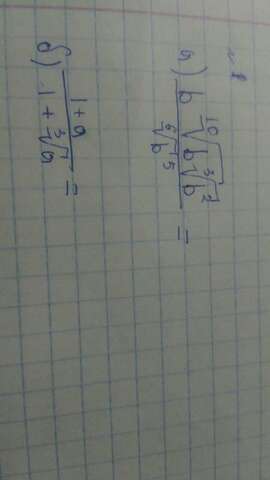 № 1
а) b ¹⁰√(b ³√b²) / ⁶√b⁵ =
б) 1 + a / 1 + ³√a =